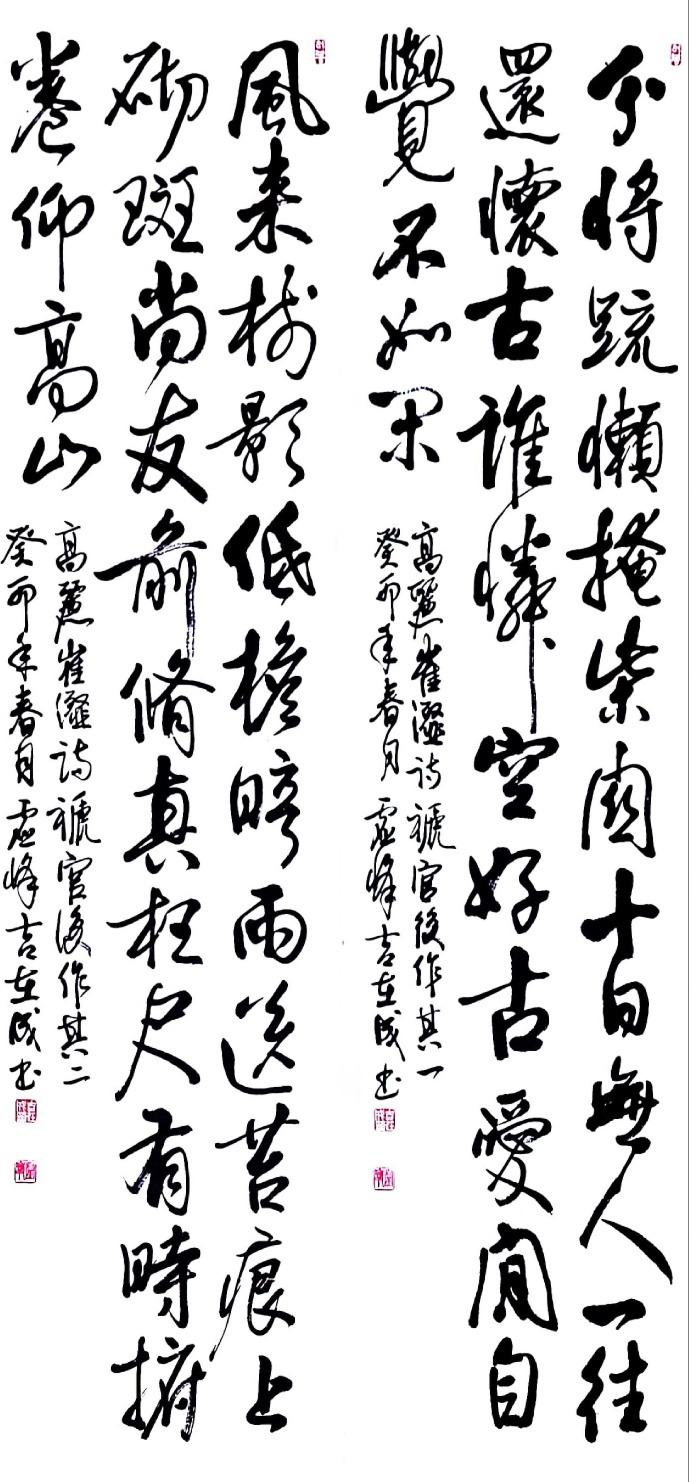 分將踈懶掩柴關十日無人一往
還懷古誰憐空好古愛閑自
覺不如閑
高麗崔瀣詩褫官後作其一
癸卯年春月虛峰吉在成書
風來樹影低檐暗雨送苔痕上
砌斑尚友前脩真枉尺有時捬
卷仰高山
高麗崔瀣詩褫官後作其二
癸卯年春月虛峰吉在成書